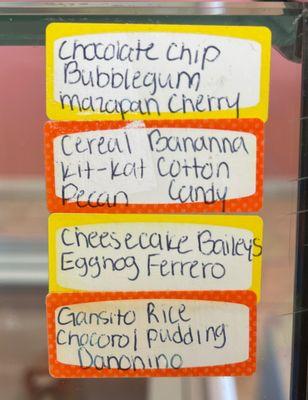 Chocolate chip
Bubblegum
mazapan Cherry
Cereal Bananna
Kit-Kat Cotton
Pecan Candy
Cheesecake Baileys
Eggnog Ferrero
Gansito Rice
Chocorol pudding
Danonino